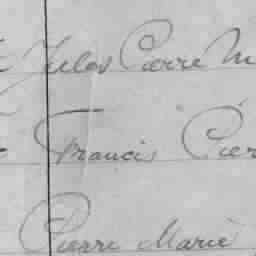 Jules Pierre M
Francis Pier
Pierre Marie